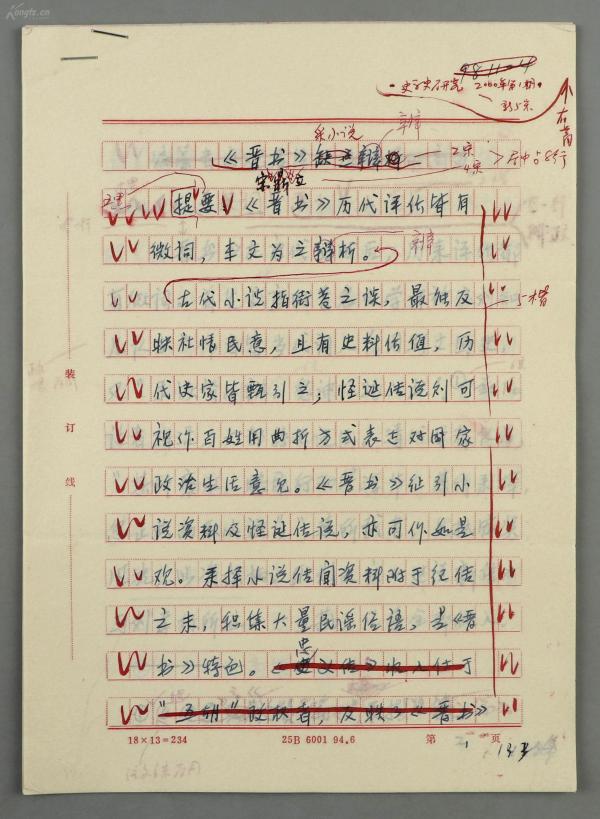 Kongfz.cn
98.11.4
史学史研究 2000年第1期
不右齐
采小说
辩
《晋书》
宋鼎立
2宋
4宋
居中占8行
提要 《晋书》历代评估皆有
微词，本文为之辩析。
辩
古代小说指街巷之谈，最能反
5楷
映社情民意，且有史料价值，历
代史家皆甄引之；怪诞传说则可
视作百姓用曲折方式表达对国家
政治生活意见。《晋书》征引小
说资料及怪诞传说，亦可作如是
观。采择小说传闻资料附于纪传
之末，积集大量民谣俗语，是《晋
书》特色。《忠义传》收入仕于
“五胡”政权者，反映了《晋书》
装
订
线
18×13=234
25B 6001 94.6
第 页